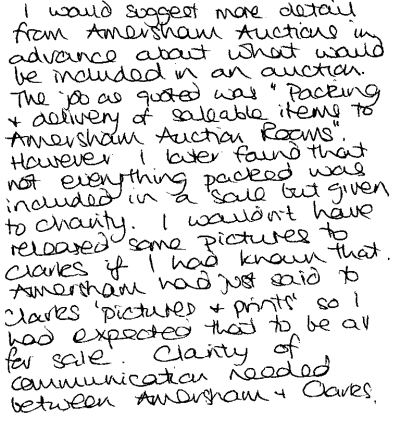 I would suggest more detail
from Amersham Auctions in
advance about what would
be included in an auction.
The job as quoted was "Packing
+ delivery of saleable items to
Amersham Auction Rooms".
However I later found that
not everything packed was
included in a sale but given
to charity. I wouldn't have
released some pictures to
Clarks if I had known that.
Amersham had just said to
Clarks 'pictures + prints' so I
had expected that to be all
for sale. Clarity of
communication needed
between Amersham + Clarks.